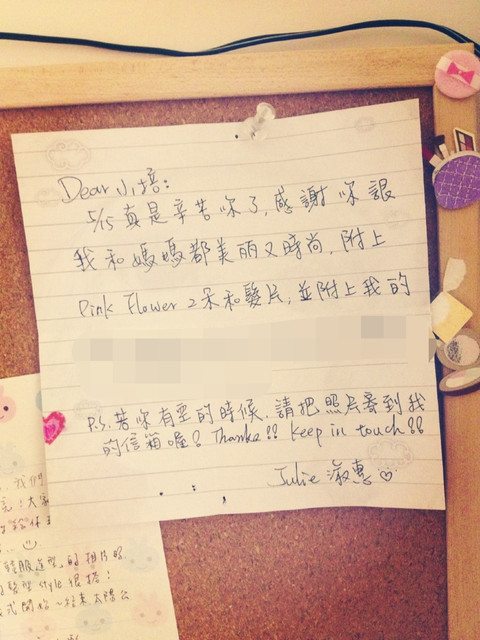 Dear 小培:
5/15真是辛苦你了,感謝你讓
我和媽媽都美丽又時尚,附上
Pink Flower 2朵和髮片,並附上我的
P.S. 若你有空的時候,請把照片寄到我
的信箱喔! Thanks!! Keep in touch!!
Julie 淑惠♡
我們
大家
style 很搭!
式開始~